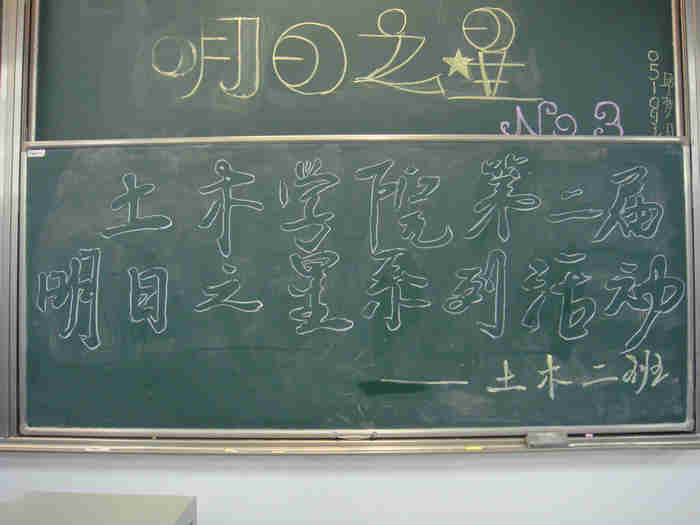 明日之星
No.3
土木学院第二届
明日之星系列活动
——土木二班